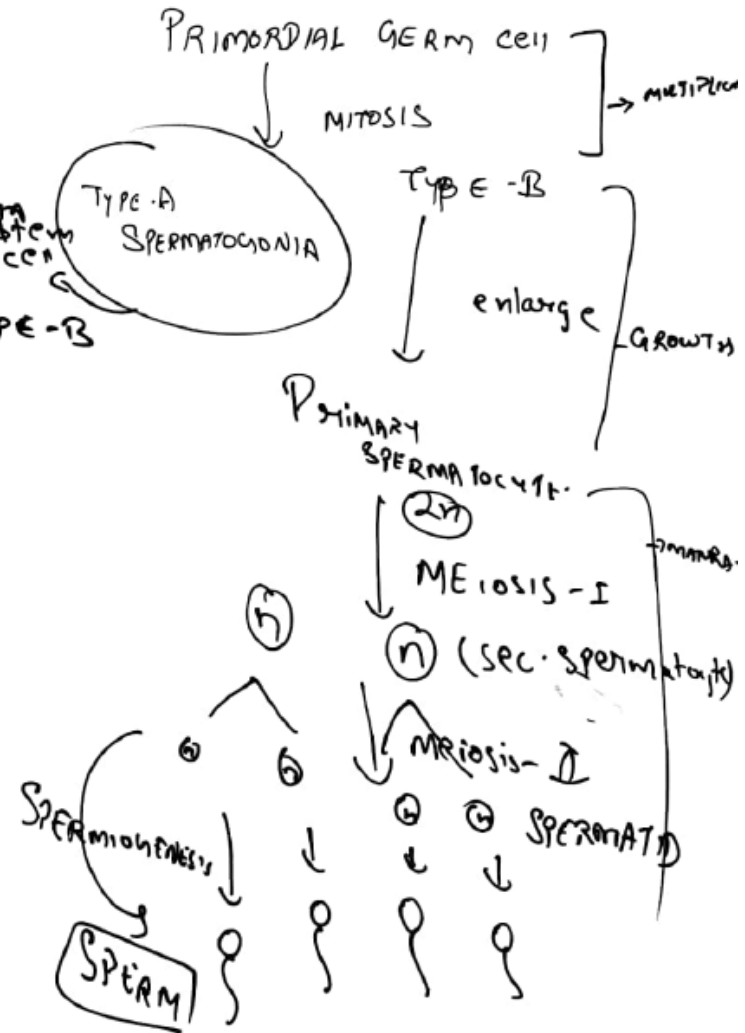 PRIMORDIAL GERM cell
MITOSIS
TYPE-A
SPERMATOGONIA
stem
cell
PE-B
TYPE-B
enlarge
GROWTH
PRIMARY
SPERMATOCYTE.
2n
MEIOSIS-I
n
n (sec. spermatocyte)
MEiosis-II
n
n
n
n
SPERMATID
SPERMIOGENESIS
SPERM